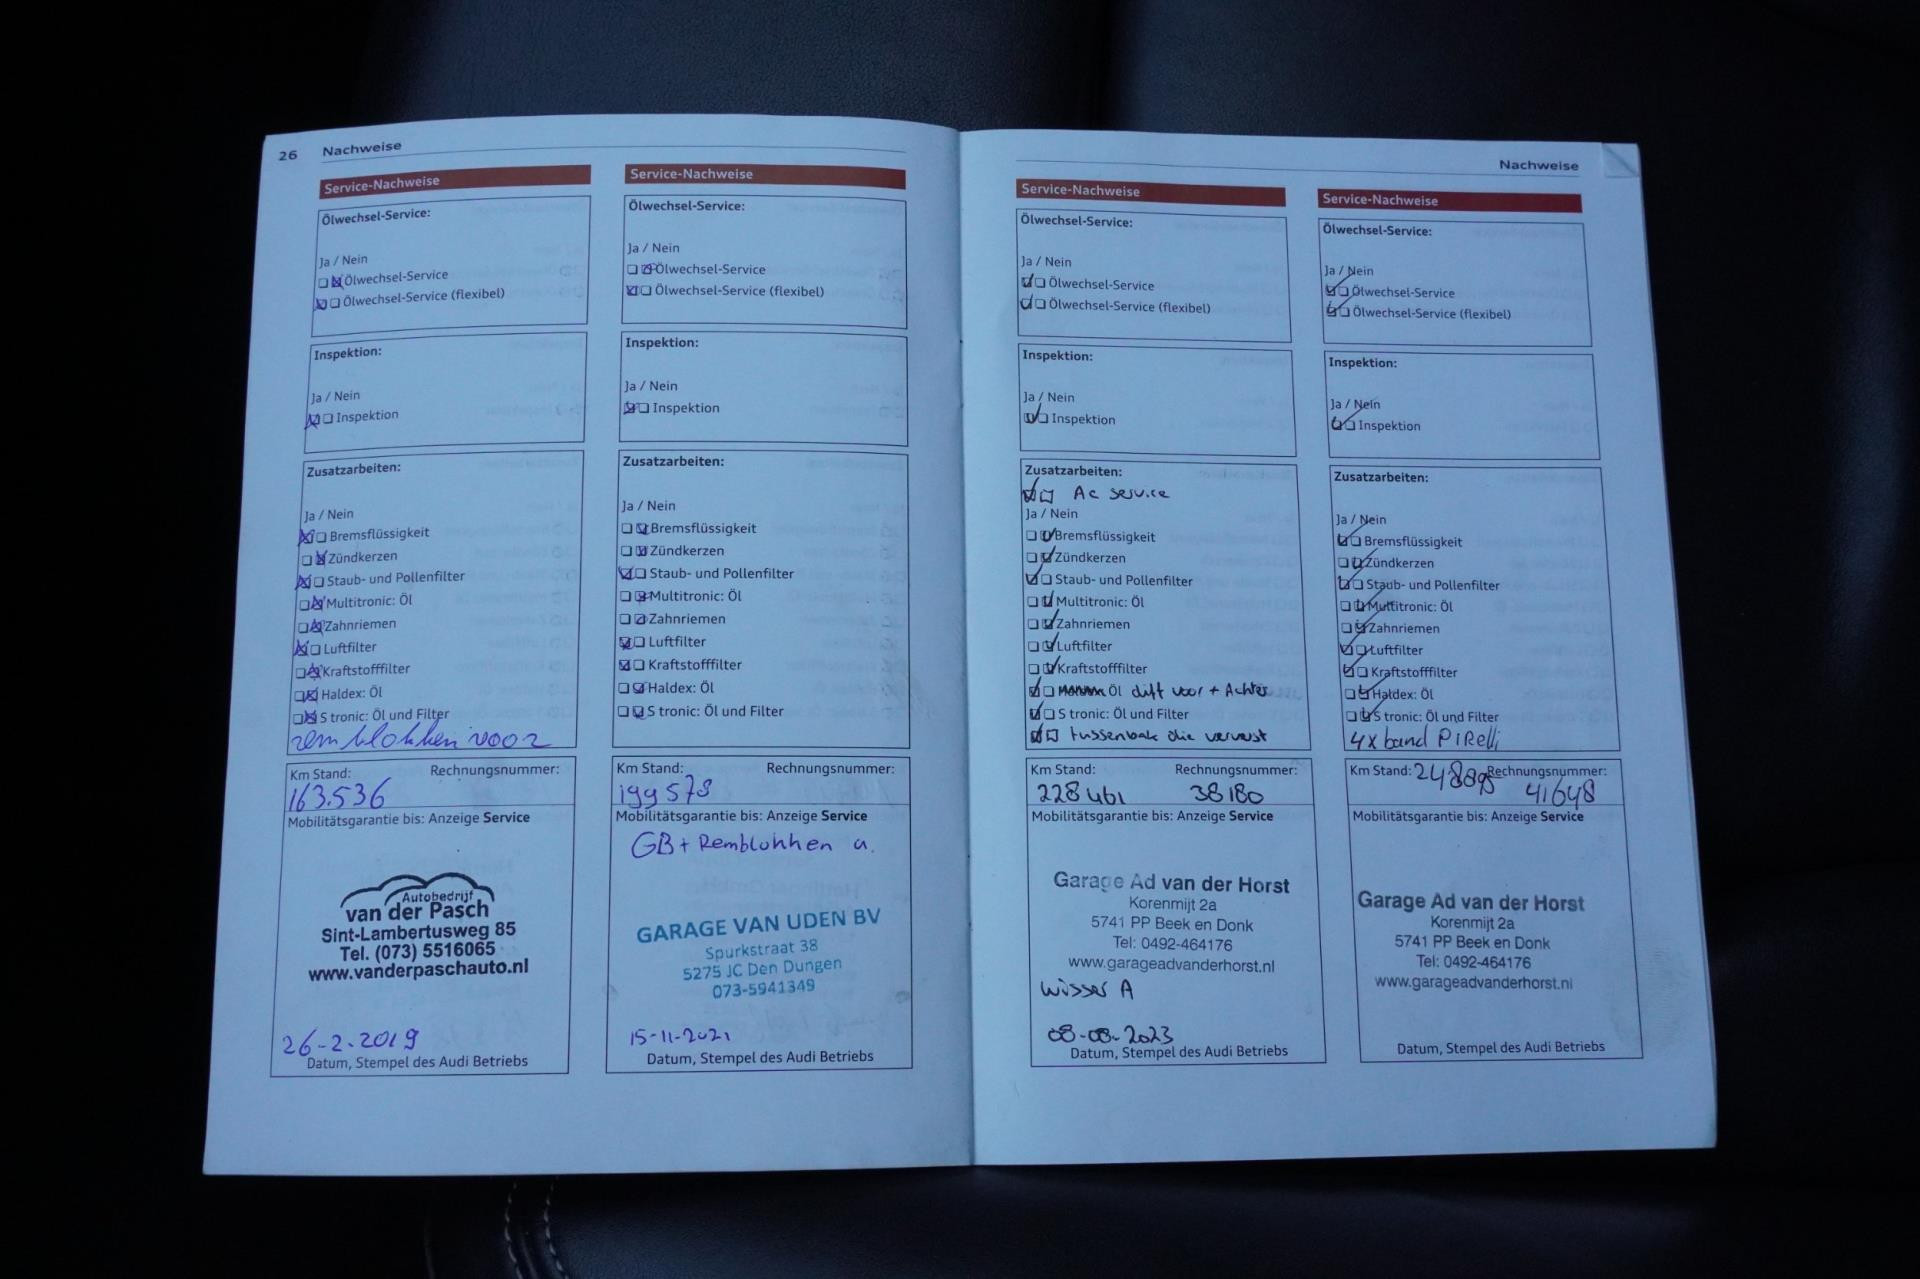 26 Nachweise
Service-Nachweise
Ölwechsel-Service:
Ja / Nein
Ölwechsel-Service
Ölwechsel-Service (flexibel)
Inspektion:
Ja / Nein
Inspektion
Zusatzarbeiten:
Ja / Nein
Bremsflüssigkeit
Zündkerzen
Staub- und Pollenfilter
Multitronic: Öl
Zahnriemen
Luftfilter
Kraftstofffilter
Haldex: Öl
S tronic: Öl und Filter
remblokken voor
Km Stand: Rechnungsnummer:
163.536
Mobilitätsgarantie bis: Anzeige Service
Autobedrijf
van der Pasch
Sint-Lambertusweg 85
Tel. (073) 5516065
www.vanderpaschauto.nl
26-2-2019
Datum, Stempel des Audi Betriebs
Service-Nachweise
Ölwechsel-Service:
Ja / Nein
Ölwechsel-Service
Ölwechsel-Service (flexibel)
Inspektion:
Ja / Nein
Inspektion
Zusatzarbeiten:
Ja / Nein
Bremsflüssigkeit
Zündkerzen
Staub- und Pollenfilter
Multitronic: Öl
Zahnriemen
Luftfilter
Kraftstofffilter
Haldex: Öl
S tronic: Öl und Filter
Km Stand: Rechnungsnummer:
199578
Mobilitätsgarantie bis: Anzeige Service
GB + Remblokken a.
GARAGE VAN UDEN BV
Spurkstraat 38
5275 JC Den Dungen
073-5941349
15-11-2021
Datum, Stempel des Audi Betriebs
Nachweise
Service-Nachweise
Ölwechsel-Service:
Ja / Nein
Ölwechsel-Service
Ölwechsel-Service (flexibel)
Inspektion:
Ja / Nein
Inspektion
Zusatzarbeiten:
Ac service
Ja / Nein
Bremsflüssigkeit
Zündkerzen
Staub- und Pollenfilter
Multitronic: Öl
Zahnriemen
Luftfilter
Kraftstofffilter
Öl diff voor + Achter
S tronic: Öl und Filter
tussenbak olie ververst
Km Stand: Rechnungsnummer:
228461 38180
Mobilitätsgarantie bis: Anzeige Service
Garage Ad van der Horst
Korenmijt 2a
5741 PP Beek en Donk
Tel: 0492-464176
www.garageadvanderhorst.nl
wisser A
08-08-2023
Datum, Stempel des Audi Betriebs
Service-Nachweise
Ölwechsel-Service:
Ja / Nein
Ölwechsel-Service
Ölwechsel-Service (flexibel)
Inspektion:
Ja / Nein
Inspektion
Zusatzarbeiten:
Ja / Nein
Bremsflüssigkeit
Zündkerzen
Staub- und Pollenfilter
Multitronic: Öl
Zahnriemen
Luftfilter
Kraftstofffilter
Haldex: Öl
S tronic: Öl und Filter
4x band Pirelli
Km Stand: 248895 Rechnungsnummer:
41648
Mobilitätsgarantie bis: Anzeige Service
Garage Ad van der Horst
Korenmijt 2a
5741 PP Beek en Donk
Tel: 0492-464176
www.garageadvanderhorst.nl
Datum, Stempel des Audi Betriebs